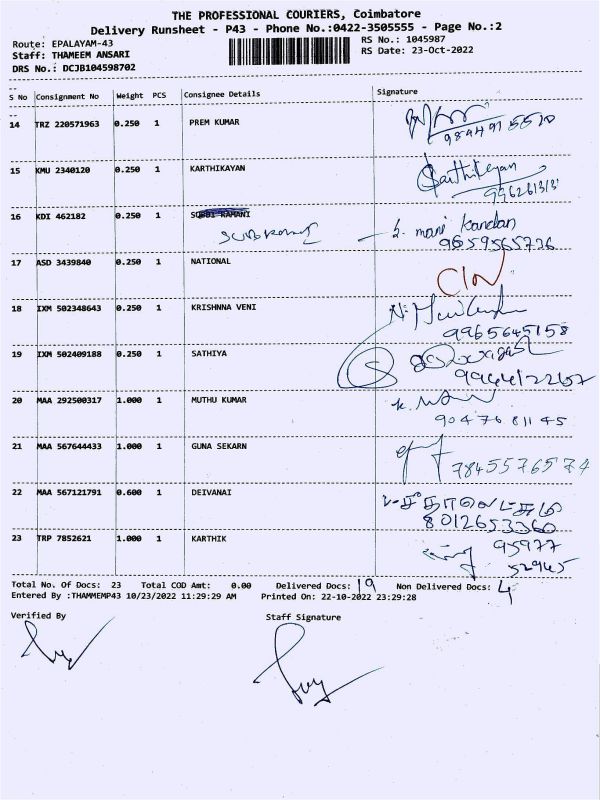 THE PROFESSIONAL COURIERS, Coimbatore
Delivery Runsheet - P43 - Phone No.:0422-3505555 - Page No.:2
Route: EPALAYAM-43
RS No.: 1045987
Staff: THAMEEM ANSARI
RS Date: 23-Oct-2022
DRS No.: DCJB104598702
S No Consignment No Weight PCS Consignee Details Signature
14 TRZ 220571963 0.250 1 PREM KUMAR
15 KMU 2340120 0.250 1 KARTHIKAYAN Karthikeyan
16 KDI 462182 0.250 1 SUBBI RAMANI S. mani kandan
9659565726
17 ASD 3439840 0.250 1 NATIONAL
18 IXM 502348643 0.250 1 KRISHNNA VENI
9965645158
19 IXM 502409188 0.250 1 SATHIYA
20 MAA 292500317 1.000 1 MUTHU KUMAR
9047681145
21 MAA 567644433 1.000 1 GUNA SEKARN
7845576574
22 MAA 567121791 0.600 1 DEIVANAI
8012653360
23 TRP 7852621 1.000 1 KARTHIK 95977
52945
Total No. Of Docs: 23 Total COD Amt: 0.00 Delivered Docs: 19 Non Delivered Docs: 4
Entered By :THAMMEMP43 10/23/2022 11:29:29 AM Printed On: 22-10-2022 23:29:28
Verified By Staff Signature